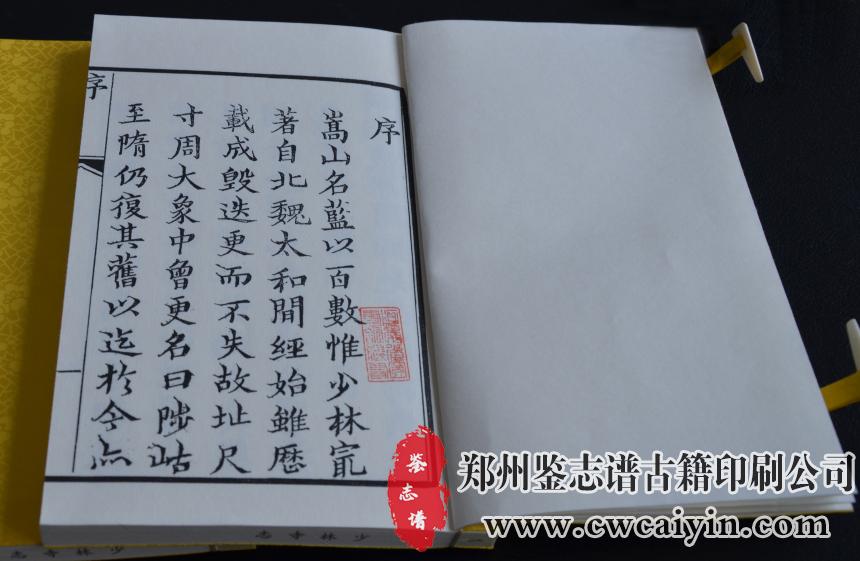 序
嵩山名藍以百數惟少林㝡
著自北魏太和間經始雖歷
載成毀迭更而不失故址尺
寸周大象中曾更名曰陟岵
至隋仍復其舊以迄於今点
序
鉴志谱
郑州鉴志谱古籍印刷公司
www.cwcaiyin.com
少林寺志